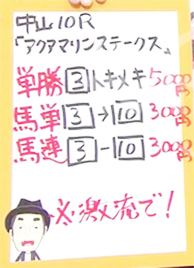 中山10R
「アクアマリンステークス」
単勝 3 トキメキ 5000円
馬単 3→10 3000円
馬連 3-10 3000円
※激流で!